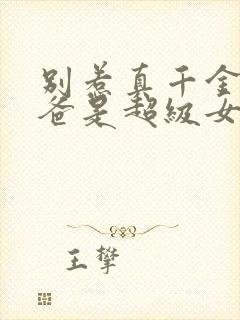 别惹真千金
爸是超级女
王攀